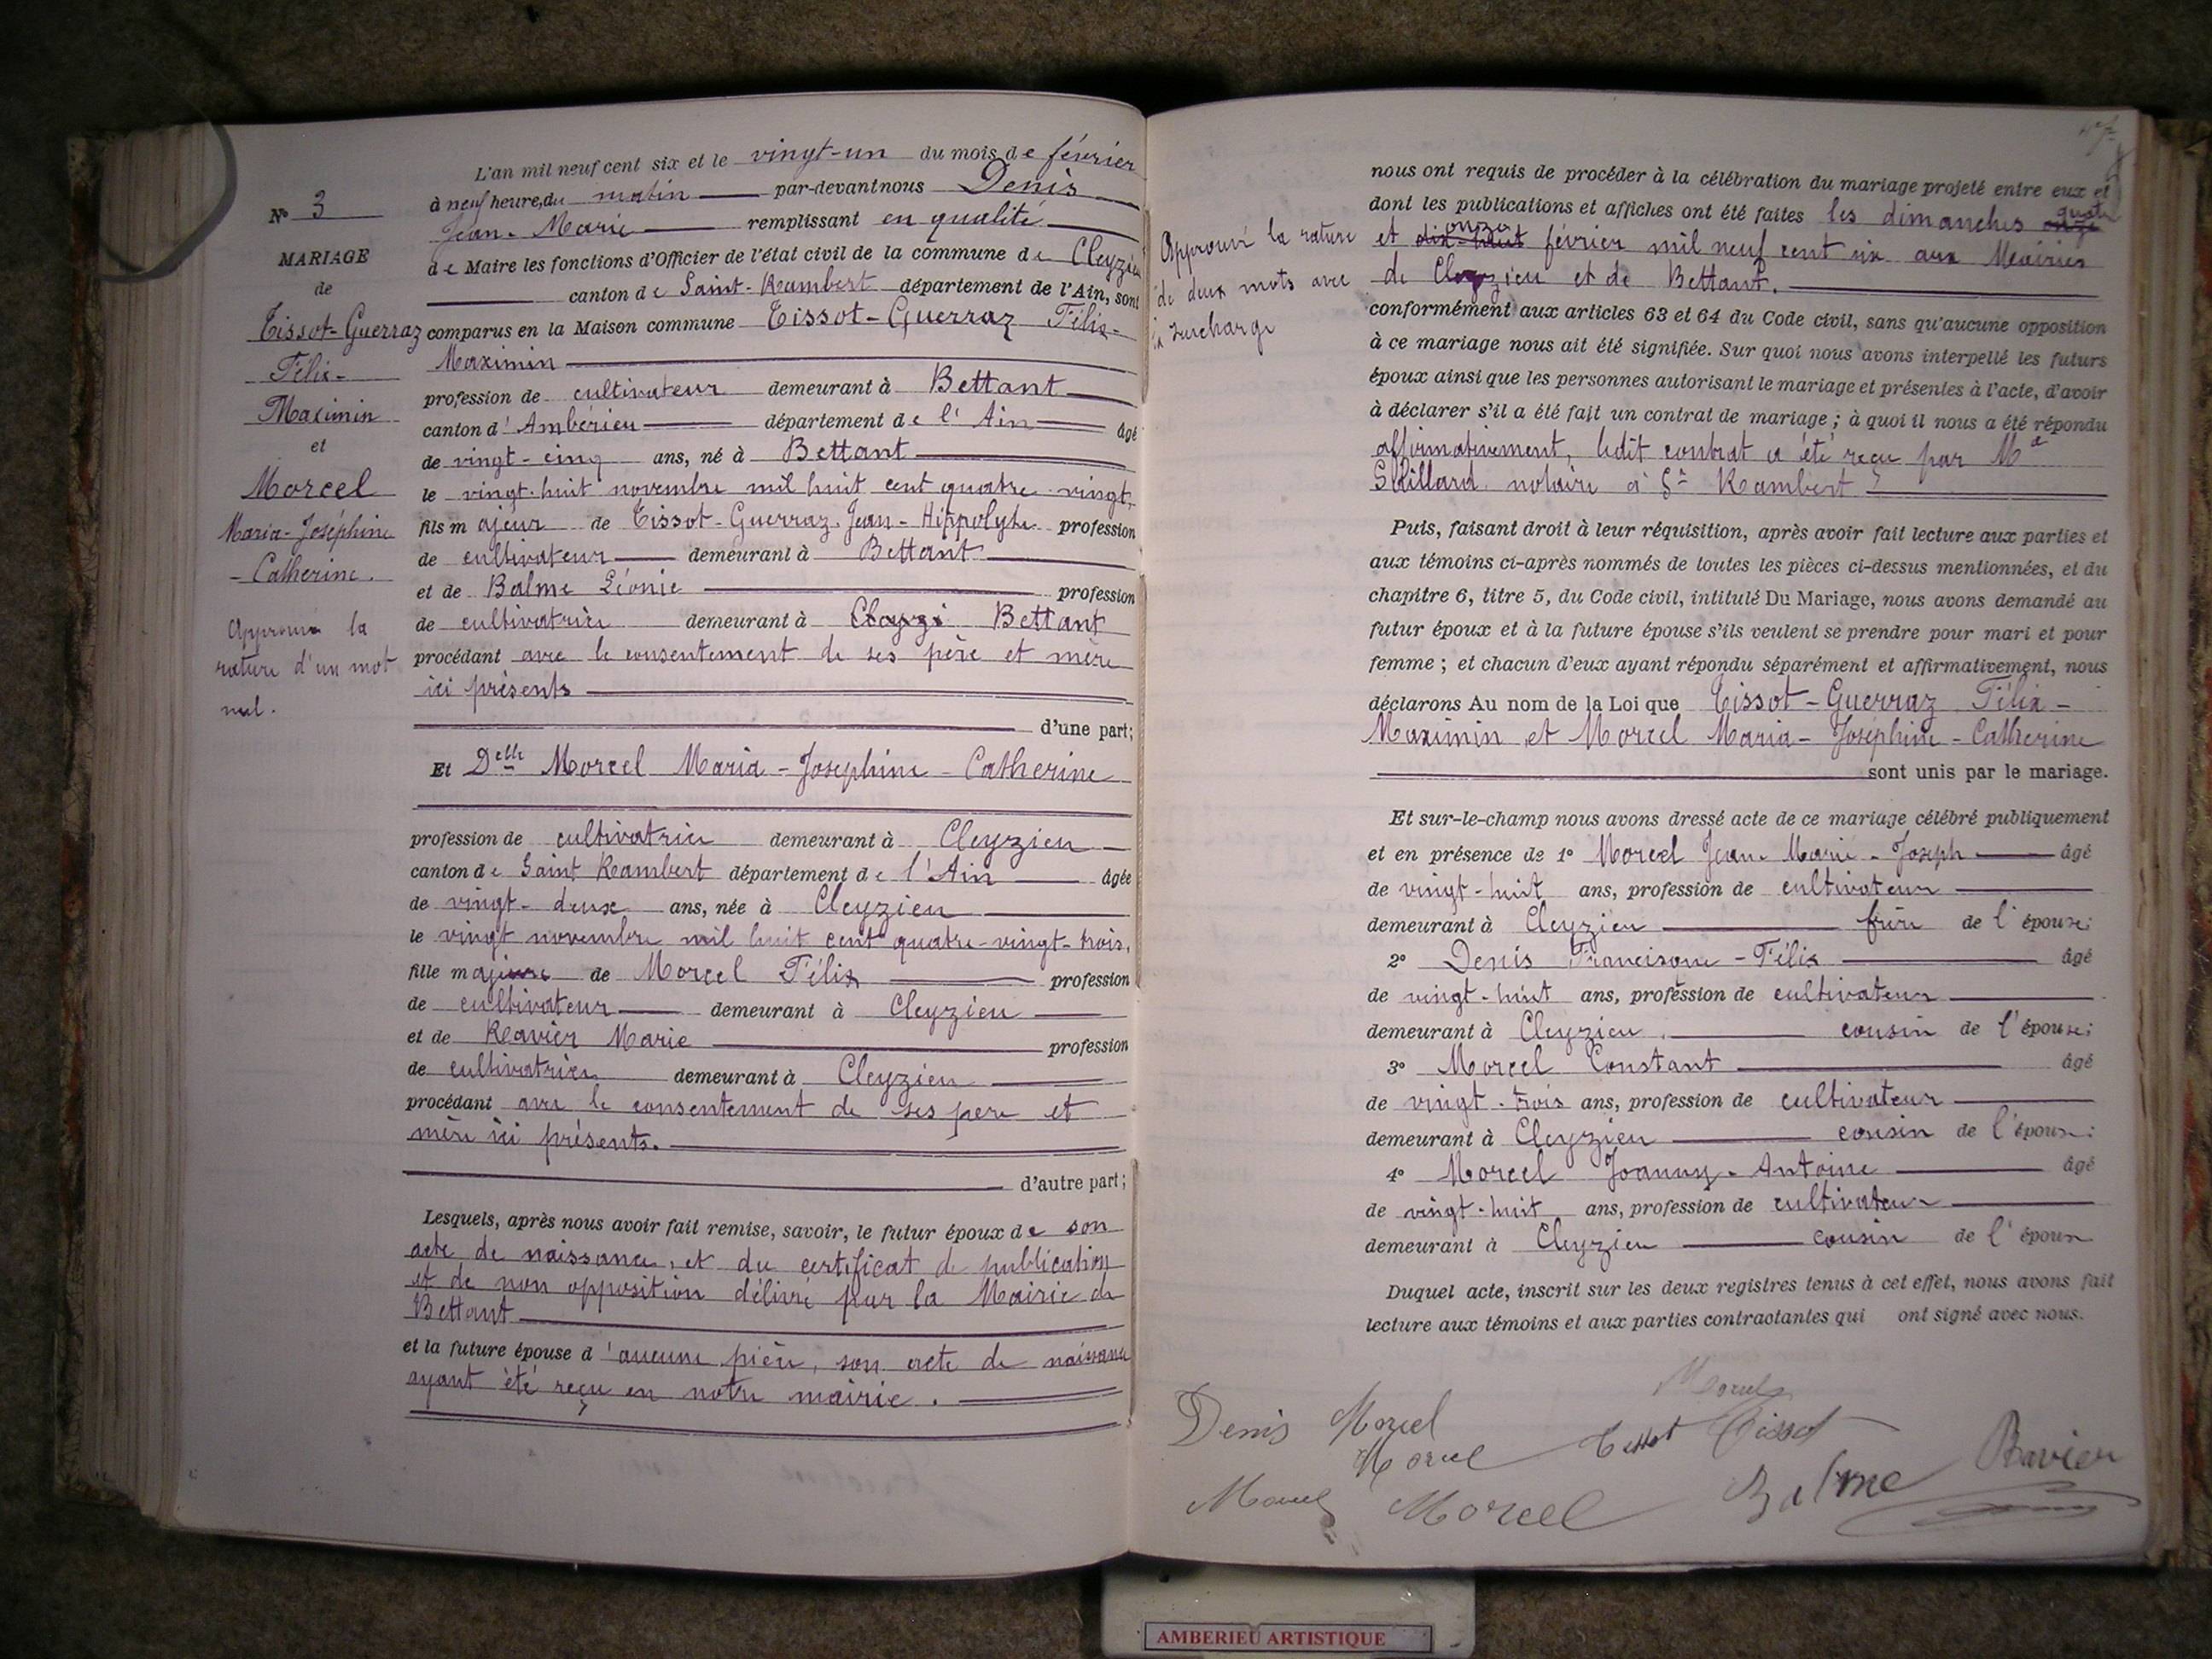 N° 3
MARIAGE
de
Tissot-Guerraz
Félix-
Maximin
et
Morcel
Maria-Joséphine
- Catherine.
Approuvé la
rature d'un mot
nul.
L'an mil neuf cent six et le vingt-un du mois de février
à neuf heure, du matin par-devant nous Denis
Jean-Marie remplissant en qualité
de Maire les fonctions d'Officier de l'état civil de la commune de Cleyzieu
canton de Saint-Rambert département de l'Ain, sont
comparus en la Maison commune Tissot-Guerraz Félix-
Maximin
profession de cultivateur demeurant à Bettant
canton d'Ambérieu département de l'Ain âgé
de vingt-cinq ans, né à Bettant
le vingt-huit novembre mil huit cent quatre-vingt,
fils majeur de Tissot-Guerraz Jean-Hippolyte profession
de cultivateur demeurant à Bettant
et de Balme Léonie profession
de cultivatrice demeurant à Cleyzi Bettant
procédant avec le consentement de ses père et mère
ici présents
d'une part;
Et Delle Morcel Maria-Josephine-Catherine
profession de cultivatrice demeurant à Cleyzieu
canton de Saint Rambert département de l'Ain âgée
de vingt-deux ans, née à Cleyzieu
le vingt novembre mil huit cent quatre-vingt-trois,
fille majeure de Morcel Félix profession
de cultivateur demeurant à Cleyzieu
et de Ravier Marie profession
de cultivatrice demeurant à Cleyzieu
procédant avec le consentement de ses pere et
mère ici présents.
d'autre part;
Lesquels, après nous avoir fait remise, savoir, le futur époux de son
acte de naissance, et du certificat de publication
et de non opposition délivré par la Mairie de
Bettant
et la future épouse d'aucune pièce, son acte de naissance
ayant été reçu en notre mairie.
nous ont requis de procéder à la célébration du mariage projeté entre eux et
dont les publications et affiches ont été faites les dimanches onze quatre
et dix-huit onze février mil neuf cent six aux Mairies
de Cleyzieu et de Bettant.
Approuvé la rature
de deux mots avec
surcharge
conformément aux articles 63 et 64 du Code civil, sans qu'aucune opposition
à ce mariage nous ait été signifiée. Sur quoi nous avons interpellé les futurs
époux ainsi que les personnes autorisant le mariage et présentes à l'acte, d'avoir
à déclarer s'il a été fait un contrat de mariage; à quoi il nous a été répondu
affirmativement, ledit contrat a été reçu par Me
notaire à St Rambert
Puis, faisant droit à leur réquisition, après avoir fait lecture aux parties et
aux témoins ci-après nommés de toutes les pièces ci-dessus mentionnées, et du
chapitre 6, titre 5, du Code civil, intitulé Du Mariage, nous avons demandé au
futur époux et à la future épouse s'ils veulent se prendre pour mari et pour
femme; et chacun d'eux ayant répondu séparément et affirmativement, nous
déclarons Au nom de la Loi que Tissot-Guerraz Félix-
Maximin et Morcel Maria-Joséphine-Catherine
sont unis par le mariage.
Et sur-le-champ nous avons dressé acte de ce mariage célébré publiquement
et en présence de 1° Morcel Jean-Marie-Joseph âgé
de vingt-huit ans, profession de cultivateur
demeurant à Cleyzieu frère de l'épouse;
2° Denis Francisque-Félix âgé
de vingt-huit ans, profession de cultivateur
demeurant à Cleyzieu cousin de l'épouse;
3° Morcel Constant âgé
de vingt-trois ans, profession de cultivateur
demeurant à Cleyzieu cousin de l'épouse;
4° Morcel Joanny-Antoine âgé
de vingt-huit ans, profession de cultivateur
demeurant à Cleyzieu cousin de l'épouse
Duquel acte, inscrit sur les deux registres tenus à cet effet, nous avons fait
lecture aux témoins et aux parties contractantes qui ont signé avec nous.
Morcel
Denis Morcel
Morcel Tissot Tissot
Morcel Morcel Balme Ravier
AMBERIEU ARTISTIQUE